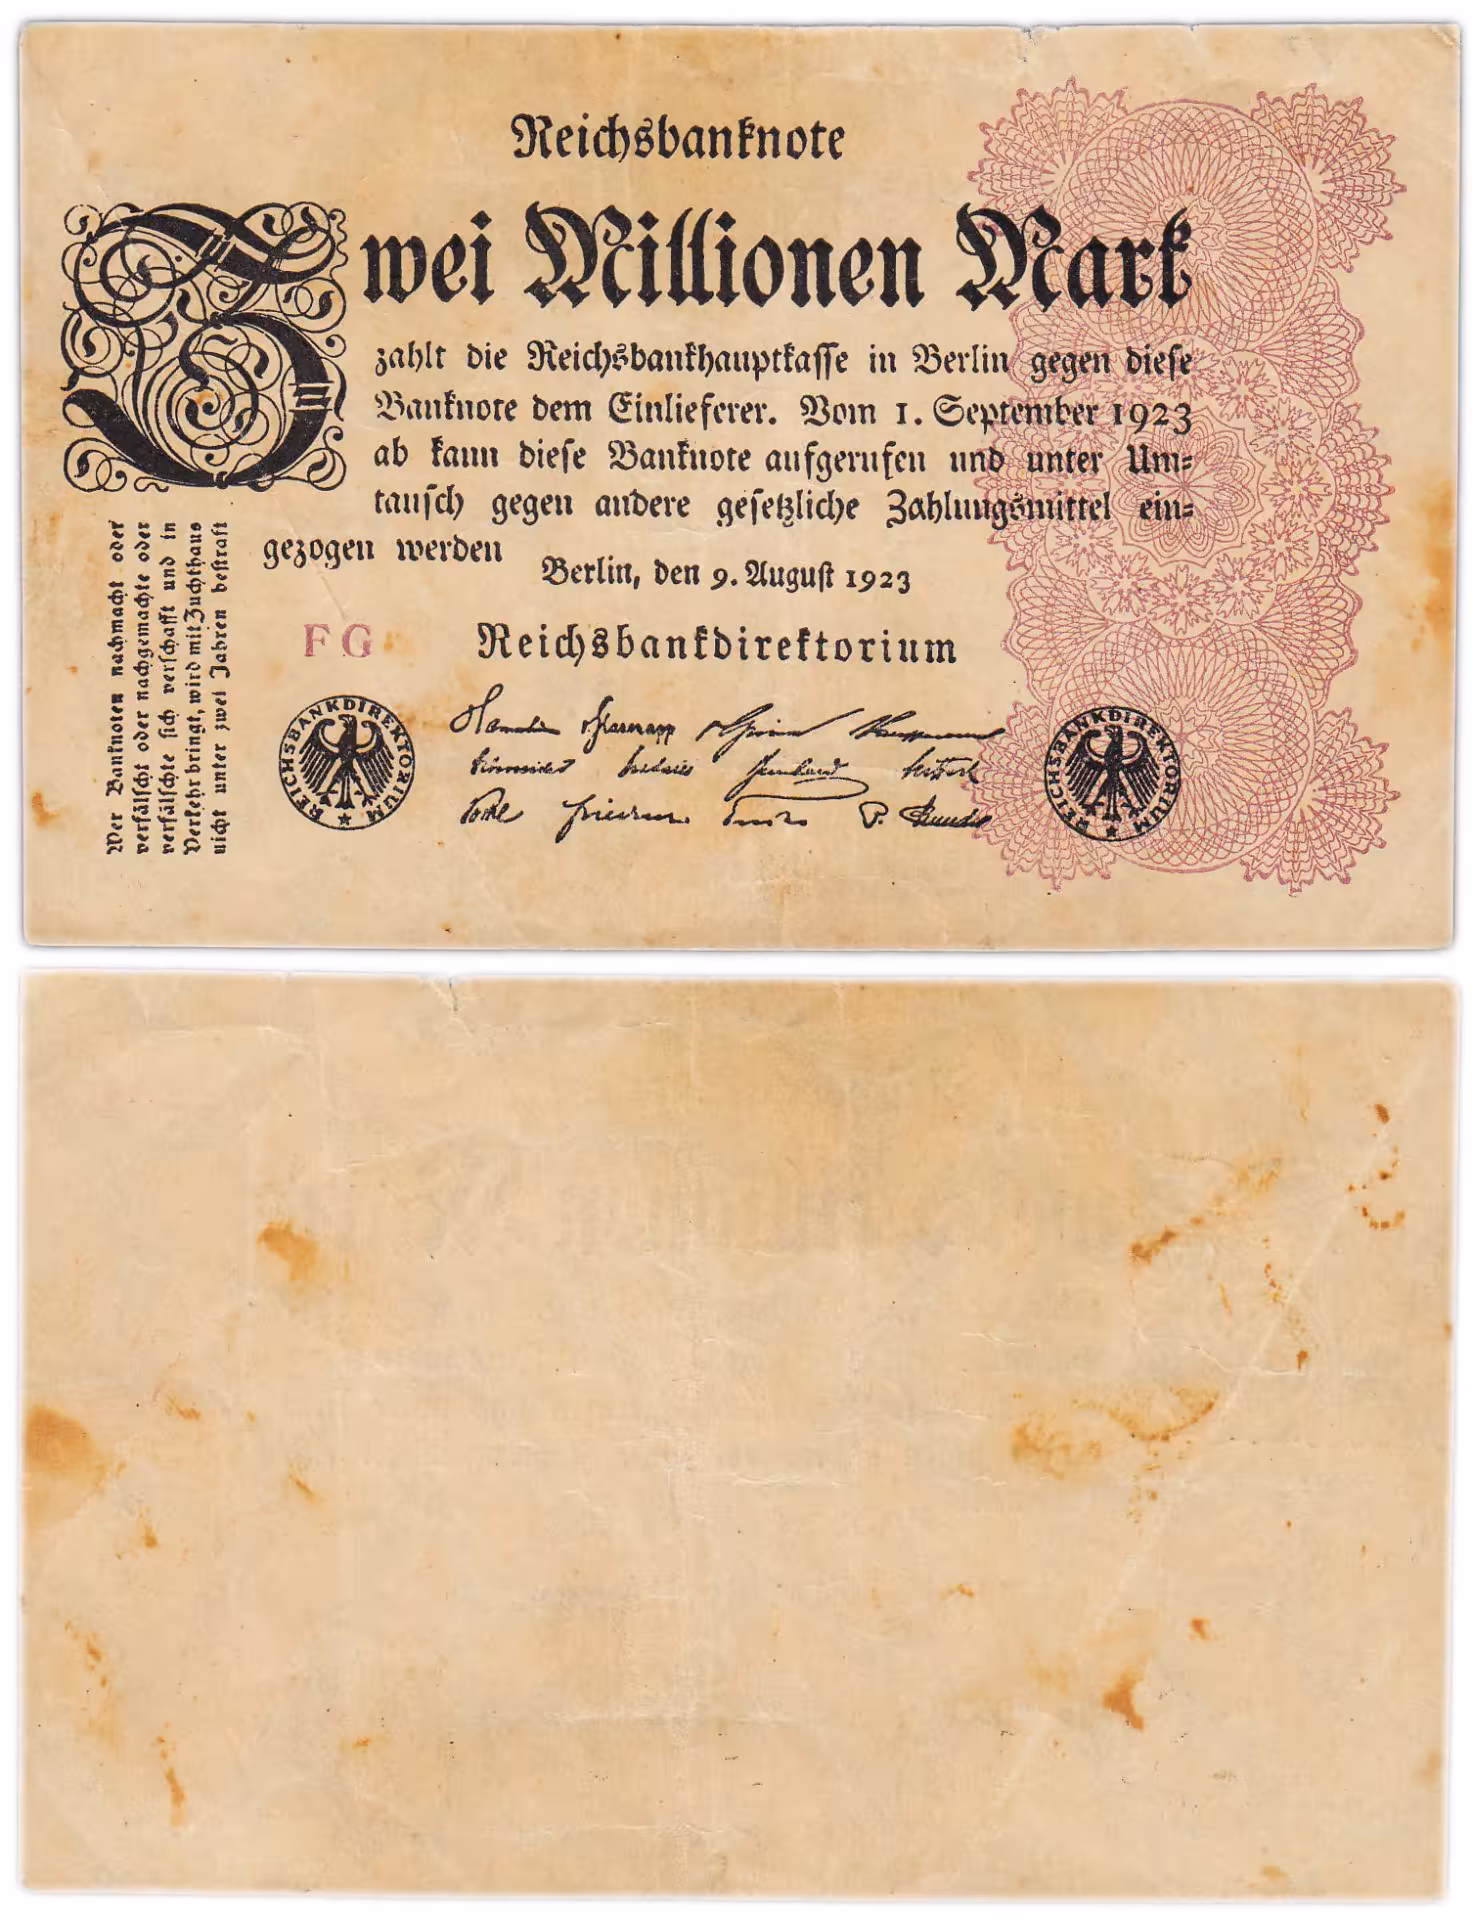 Reichsbanknote
Zwei Millionen Mark
zahlt die Reichsbankhauptkasse in Berlin gegen diese
Banknote dem Einlieferer. Vom 1. September 1923
ab kann diese Banknote aufgerufen und unter Um-
tausch gegen andere gesetzliche Zahlungsmittel ein-
gezogen werden
Berlin, den 9. August 1923
Reichsbankdirektorium
FG
Wer Banknoten nachmacht oder
verfälscht oder nachgemachte oder
verfälschte sich verschafft und in
Verkehr bringt, wird mit Zuchthaus
nicht unter zwei Jahren bestraft
REICHSBANKDIREKTORIUM
REICHSBANKDIREKTORIUM